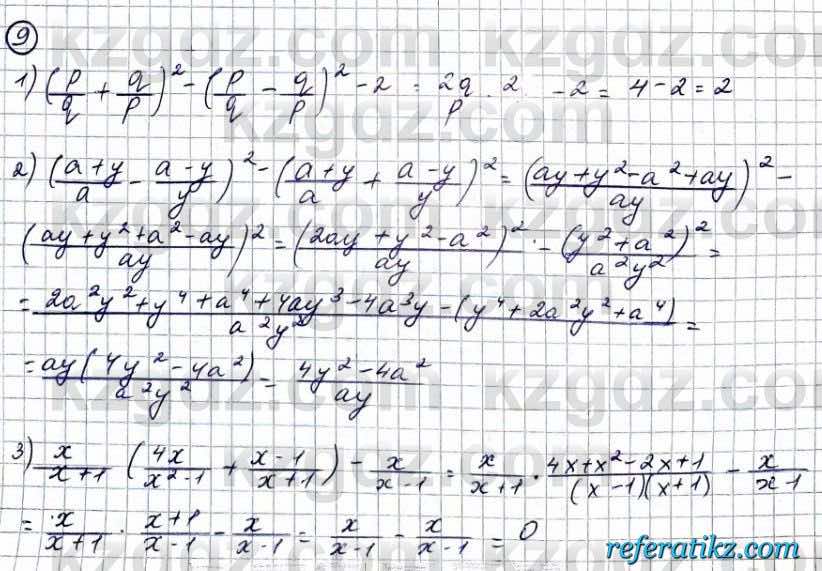 9
1) (p/q + q/p)² - (p/q - q/p)² - 2 = 2q/p · 2 - 2 = 4 - 2 = 2
2) ((a+y)/a - (a-y)/y)² - ((a+y)/a + (a-y)/y)² = ((ay+y²-a²+ay)/ay)² -
((ay+y²+a²-ay)/ay)² = ((2ay+y²-a²)/ay)² - (y²+a²)²/a²y² =
= (2a²y²+y⁴+a⁴+4ay³-4a³y-(y⁴+2a²y²+a⁴))/a²y² =
= ay(4y²-4a²)/a²y² = (4y²-4a²)/ay
3) x/(x+1) (4x/(x²-1) + (x-1)/(x+1)) - x/(x-1) = x/(x+1) · (4x+x²-2x+1)/((x-1)(x+1)) - x/(x-1)
= x/(x+1) · (x+1)/(x-1) - x/(x-1) = x/(x-1) - x/(x-1) = 0
referatikz.com
kzgdz.com